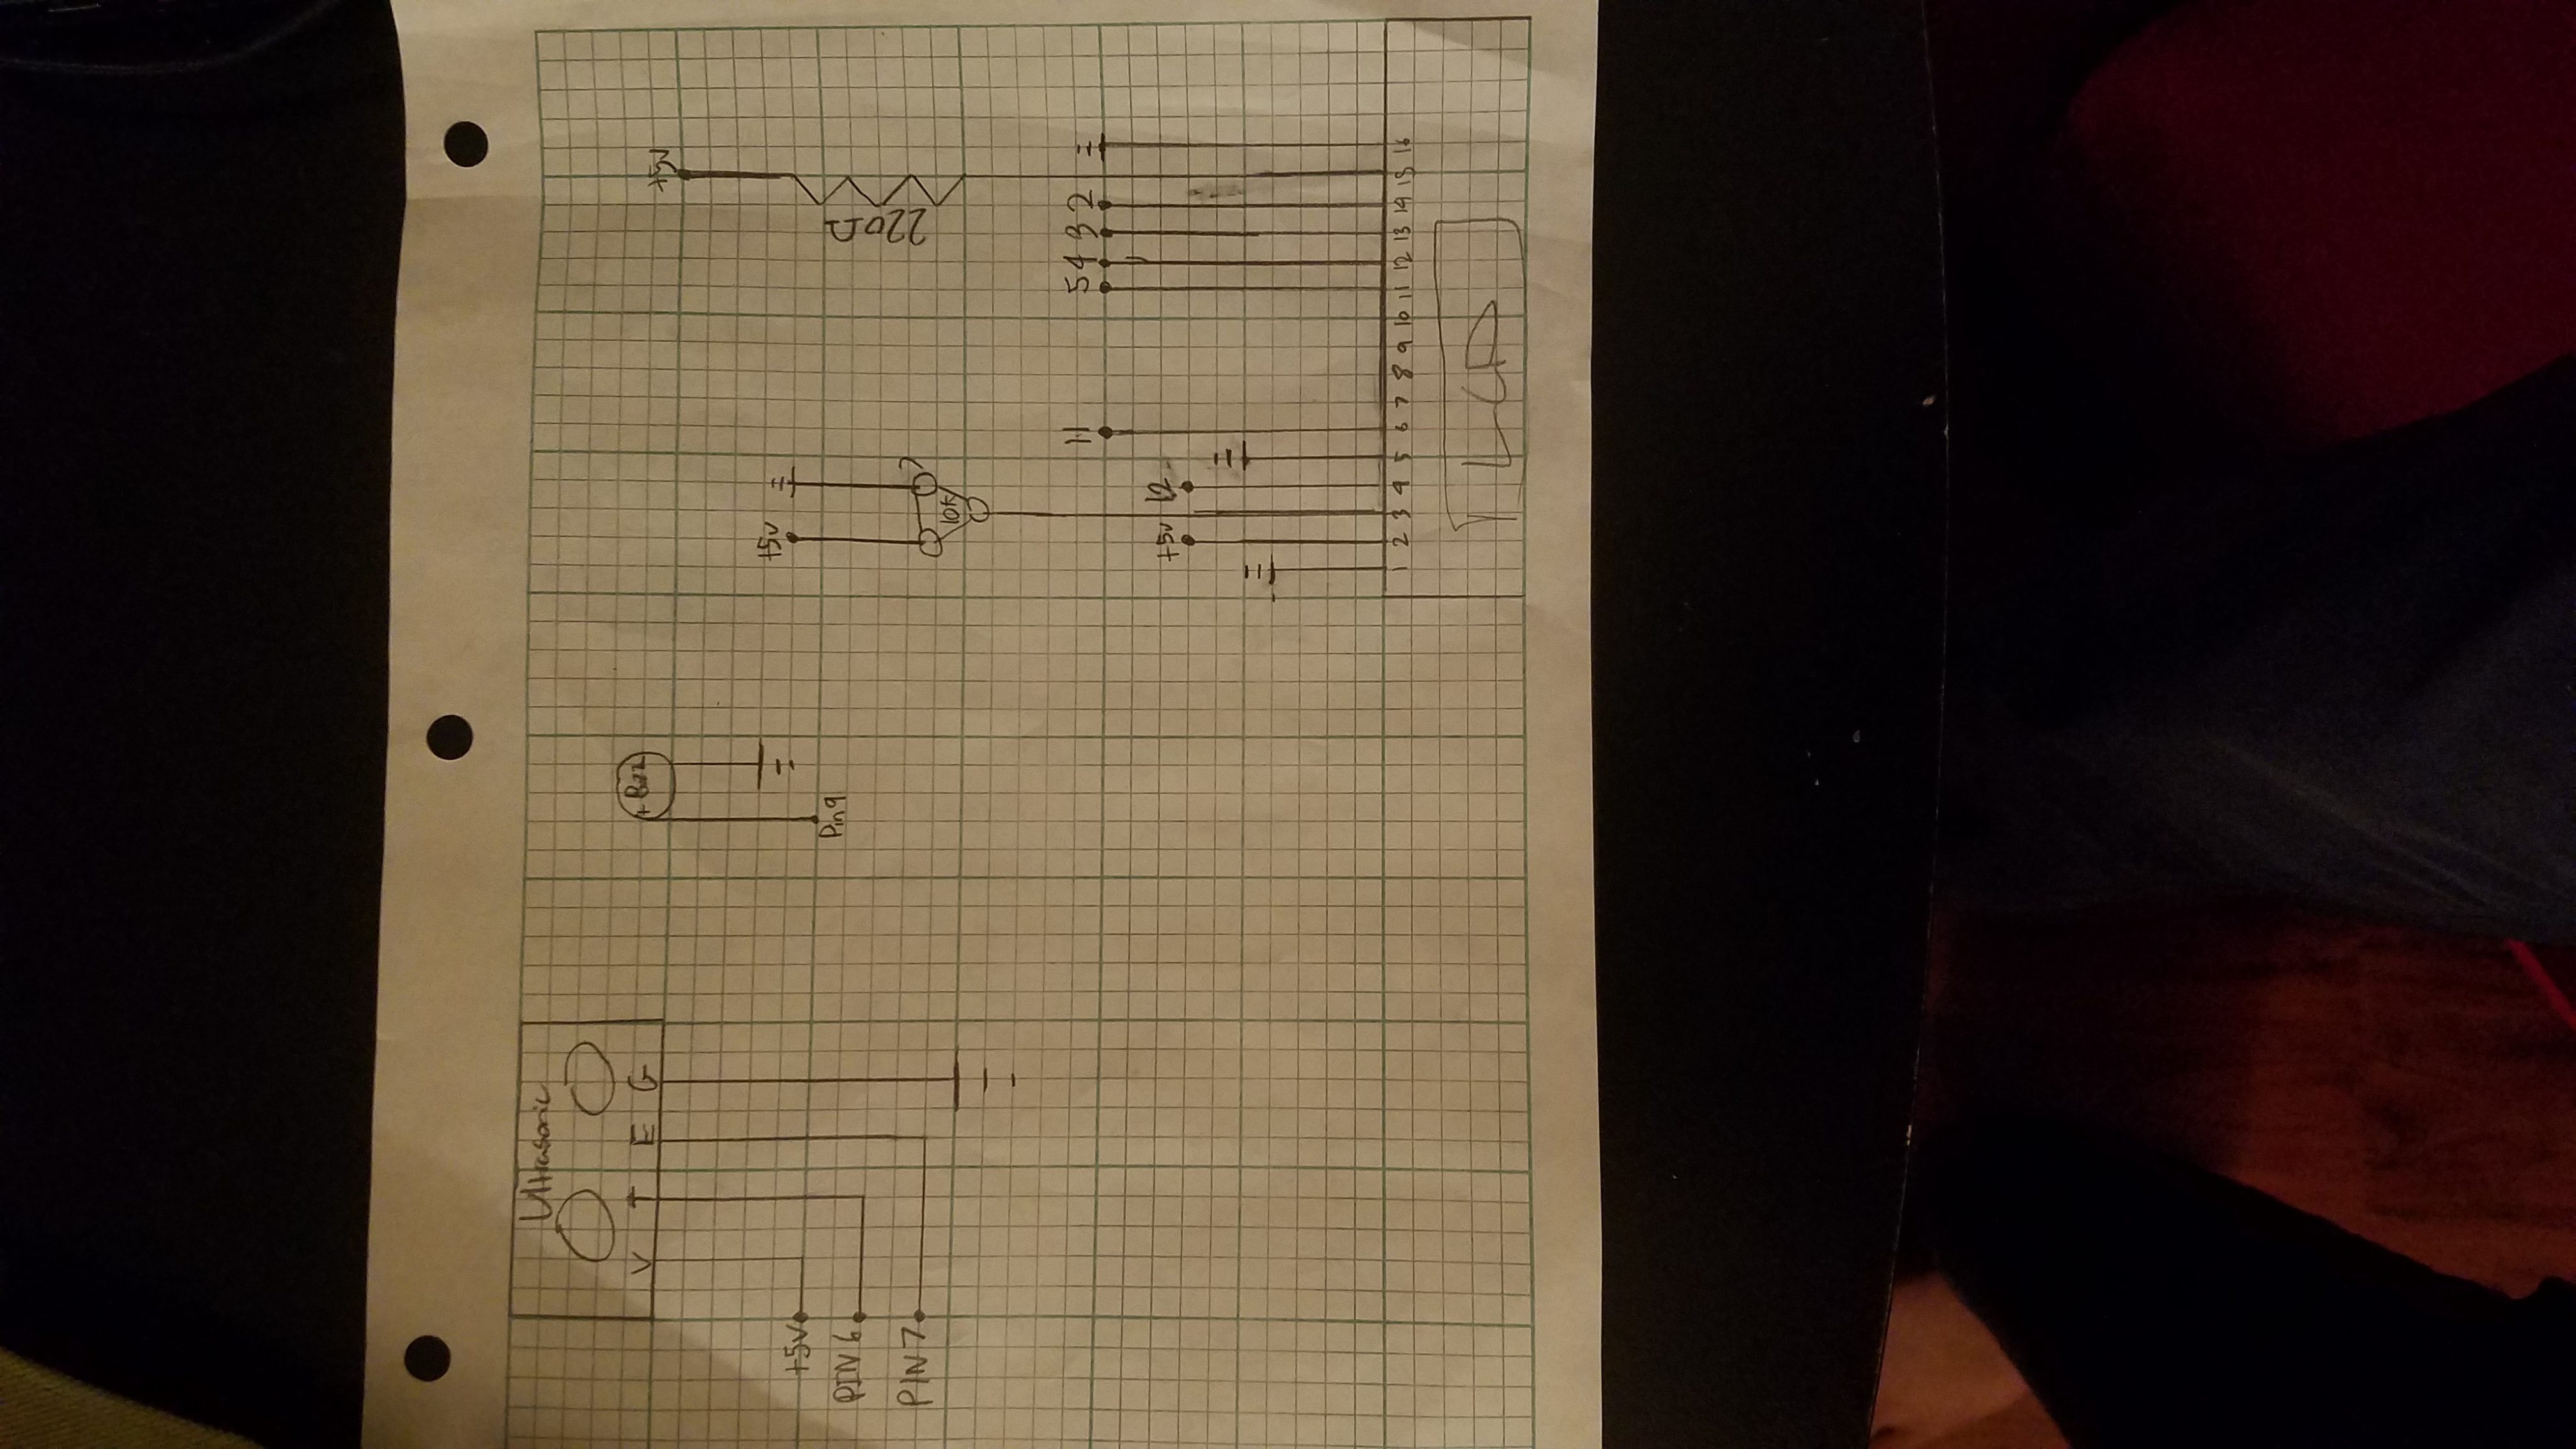 Ultrasonic
V T E G
+5V
PIN 6
PIN 7
+ Bzz
Pin 9
+5v
10k
+5v
220
11
5 4 3 2
+5v 12
1 2 3 4 5 6 7 8 9 10 11 12 13 14 15 16
LCD